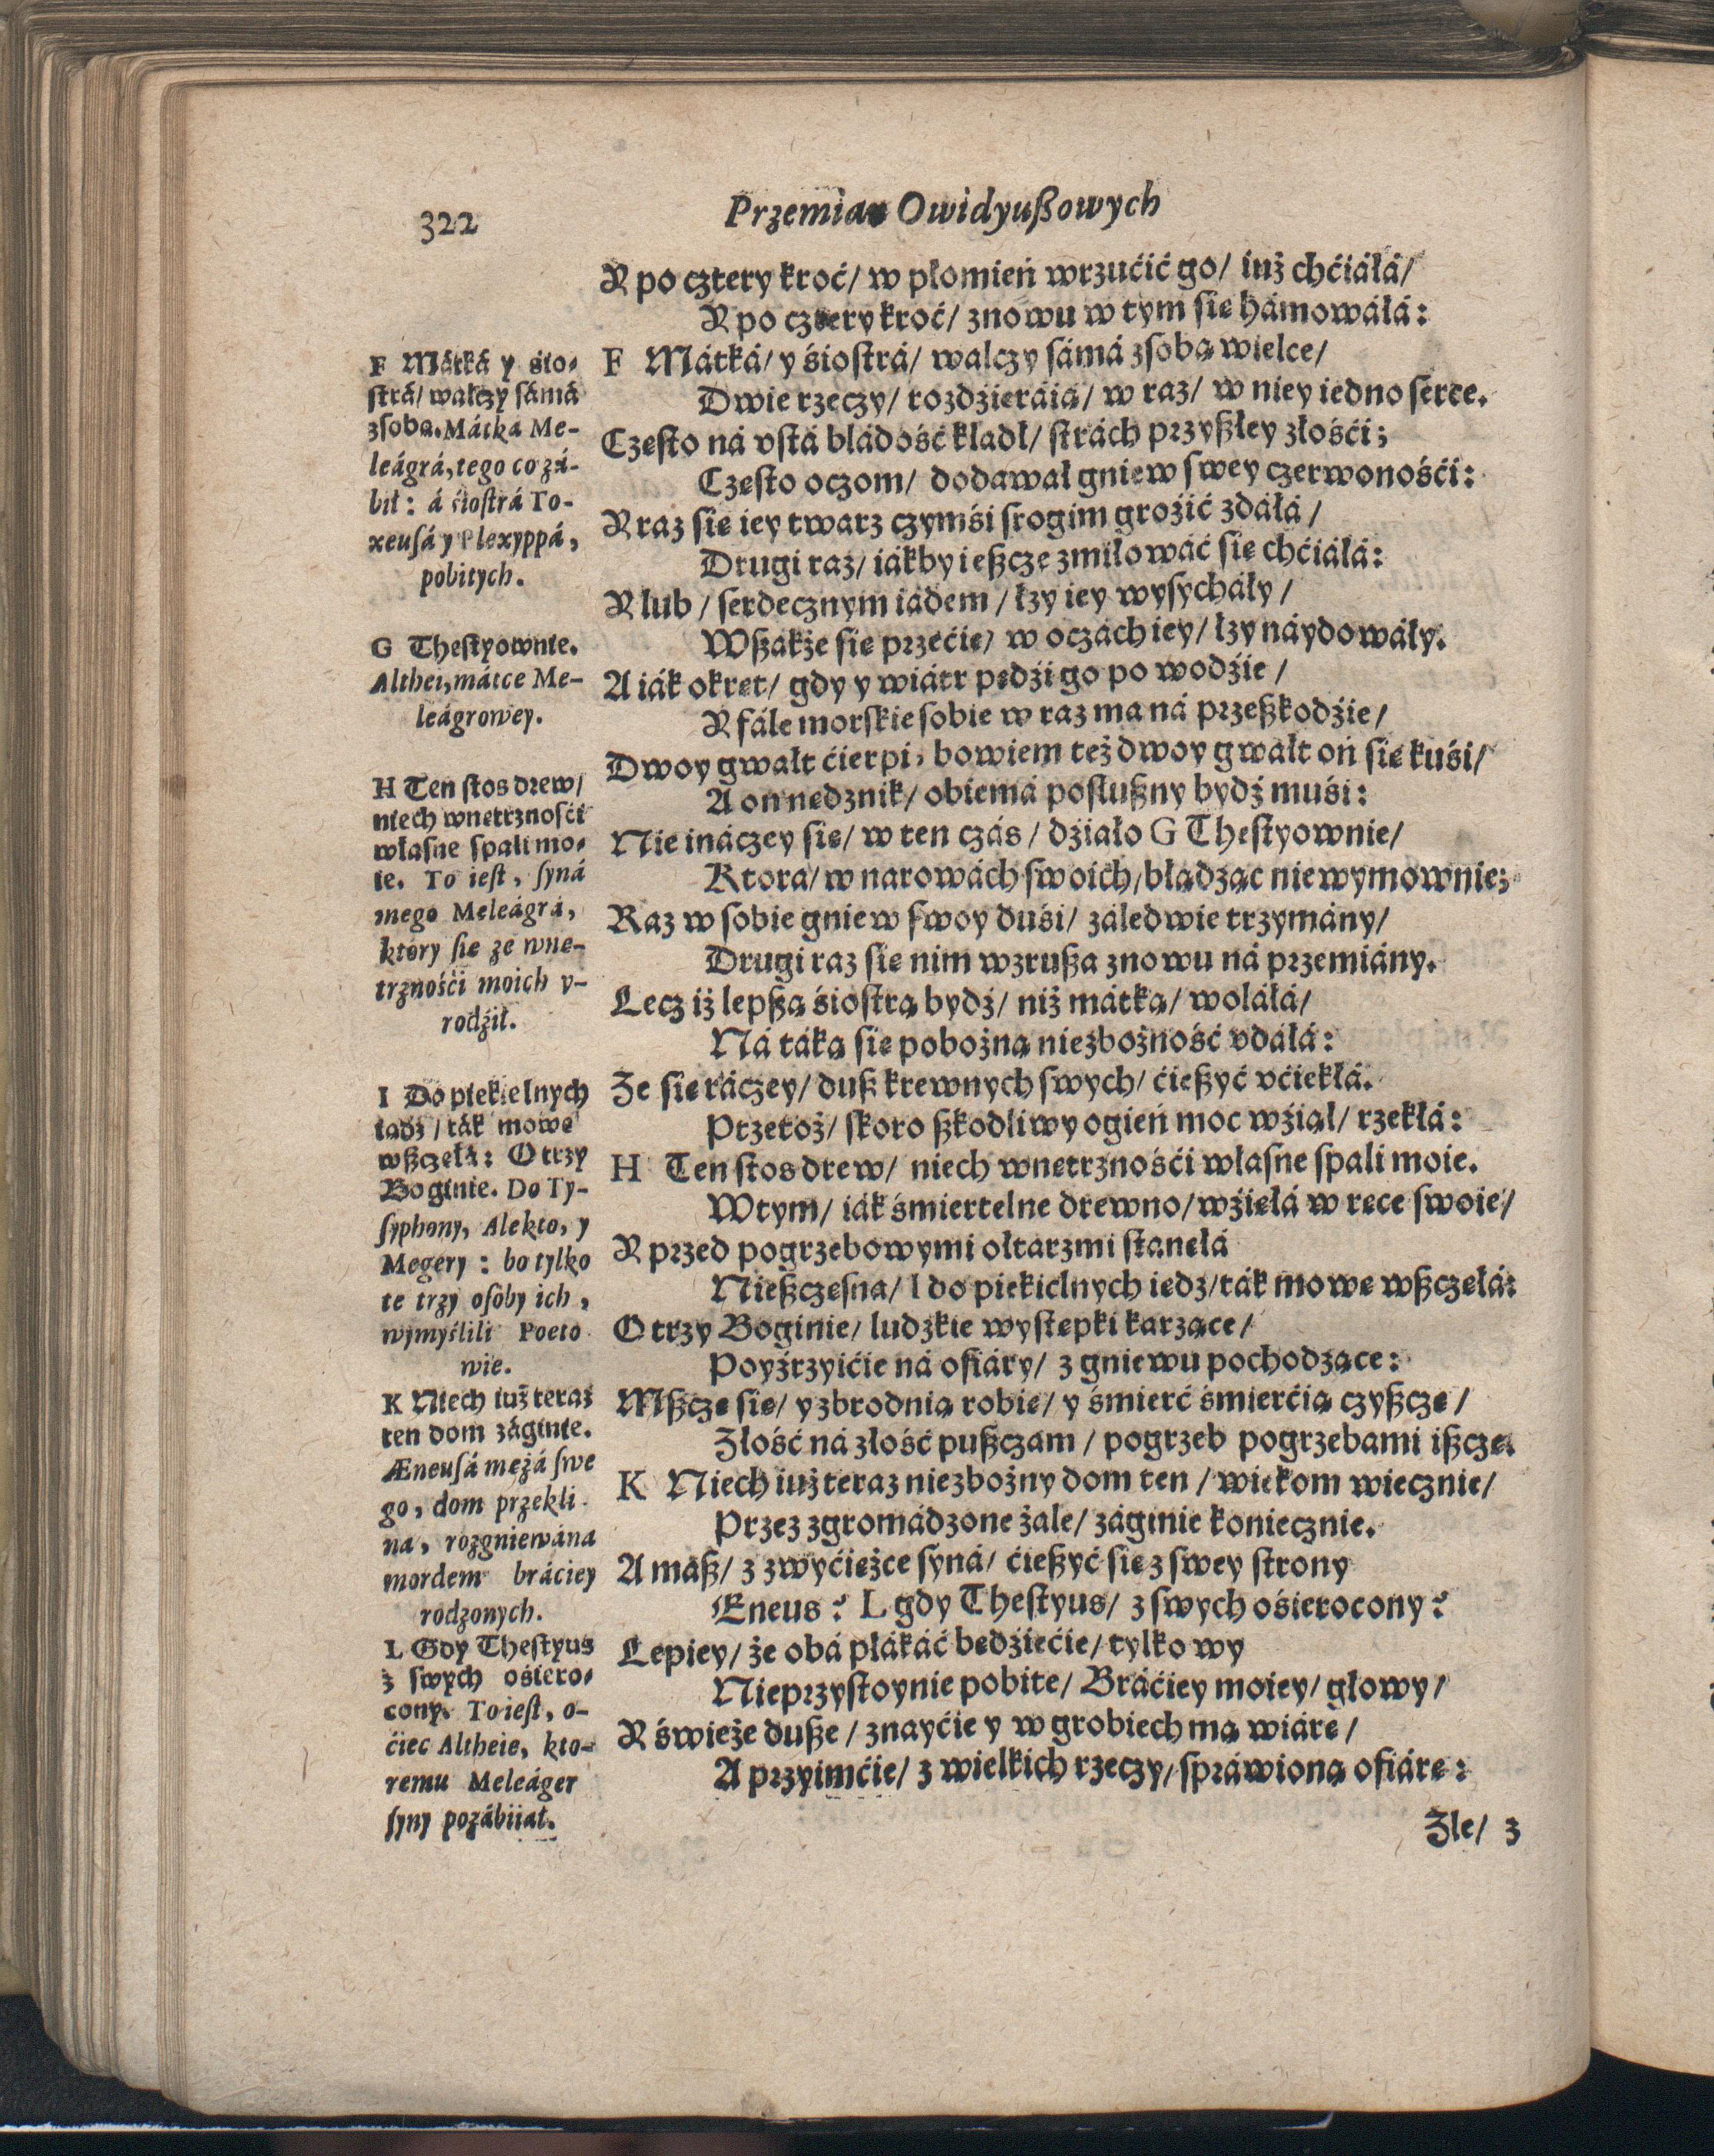 322
Przemian Owidyußowych
Y po cztery kroć/ w płomień wrzućić go/ iuż chćiáłá/
Y po cztery kroć/ znowu w tym się hámowáłá:
F Mátká/ y śiostrá/ walczy sámá zsobą wielce/
Dwie rzeczy/ rozdźieráią/ w raz/ w niey iedno serce.
Często ná vstá bládość kładł/ strách przyßłey złośći;
Często oczom/ dodawał gniew swey czerwonośći:
Y raz się iey twarz czymśi srogim groźić zdáłá/
Drugi raz/ iákby ießcze zmiłowáć się chćiáłá:
Y lub/ serdecznym iádem/ łzy iey wysycháły/
Wßákże się przećię/ w oczách iey/ łzy náydowáły.
A iák okręt/ gdy y wiátr pędźi go po wodźie/
Y fále morskie sobie w raz ma ná przeßkodźie/
Dwoy gwałt ćierpi, bowiem też dwoy gwałt oń się kuśi/
A on nędznik/ obiemá posłußny bydź muśi:
Nie ináczey się/ w ten czás/ dźiało G Thestyownie/
Ktora/ w narowách swoich, błądząc niewymownie;
Raz w sobie gniew swoy duśi/ záledwie trzymány/
Drugi raz się nim wzrußa znowu ná przemiány.
Lecz iż lepßą śiostrą bydź/ niż mátką/ woláłá/
Ná táką się pobożną niezbożność vdáłá:
Że się ráczey/ duß krewnych swych/ ćießyć vćiekłá.
Przetoż/ skoro ßkodliwy ogień moc wźiął/ rzekłá:
H Ten stos drew/ niech wnętrznośći własne spali moie.
Wtym/ iák śmiertelne drewno/ wźięłá w ręce swoie/
Y przed pogrzebowymi ołtarzmi stánęłá
Nießczęsna/ I do piekielnych iędz/ ták mowę wßczęłá:
O trzy Boginie/ ludzkie występki karzące/
Poyźrzyićie ná ofiáry/ z gniewu pochodzące:
Mßczę się/ y zbrodnią robię/ y śmierć śmierćią czyßczę/
Złość ná złość pußczam/ pogrzeb pogrzebami ißczę.
K Niech iuż teraz niezbożny dom ten/ wiekom wiecznie/
Przez zgromádzone żale/ záginie koniecznie.
A maß/ z zwyćiężce syná/ ćießyć się z swey strony
Æneus? L gdy Thestyus/ z swych ośierocony?
Lepiey/ że obá płákáć będźiećie/ tylko wy
Nieprzystoynie pobite/ Bráćiey moiey/ głowy/
Y świeże duße/ znayćie y w grobiech mą wiárę/
A przyimćie/ z wielkich rzeczy, spráwioną ofiárę:
Źle/ z
F Mátká y śio-
strá/ walczy sámá
zsobą. Mátká Me-
leágrá, tego co zá-
bił: á śiostrá To-
xeusá y Plexyppá,
pobitych.
G Thestyownie.
Althei, mátce Me-
leágrowey.
H Ten stos drew/
niech wnętrznośći
własne spali mo-
ie. To iest, syná
mego Meleágrá,
ktory się ze wnę-
trznośći moich v-
rodźił.
I Do piekielnych
iądz/ ták mowę
wßczęłá: O trzy
Boginie. Do Ty-
syphony, Alekto, y
Megery: bo tylko
te trzy osoby ich,
wymyślili Poeto
wie.
K Niech iuż teraz
ten dom záginie.
Æneusá mężá swe
go, dom przekli
na, rozgniewána
mordem bráciey
rodzonych.
L Gdy Thestyus
z swych ośiero-
cony. To iest, o-
ćiec Altheie, kto-
remu Meleáger
syny pozábiiał.